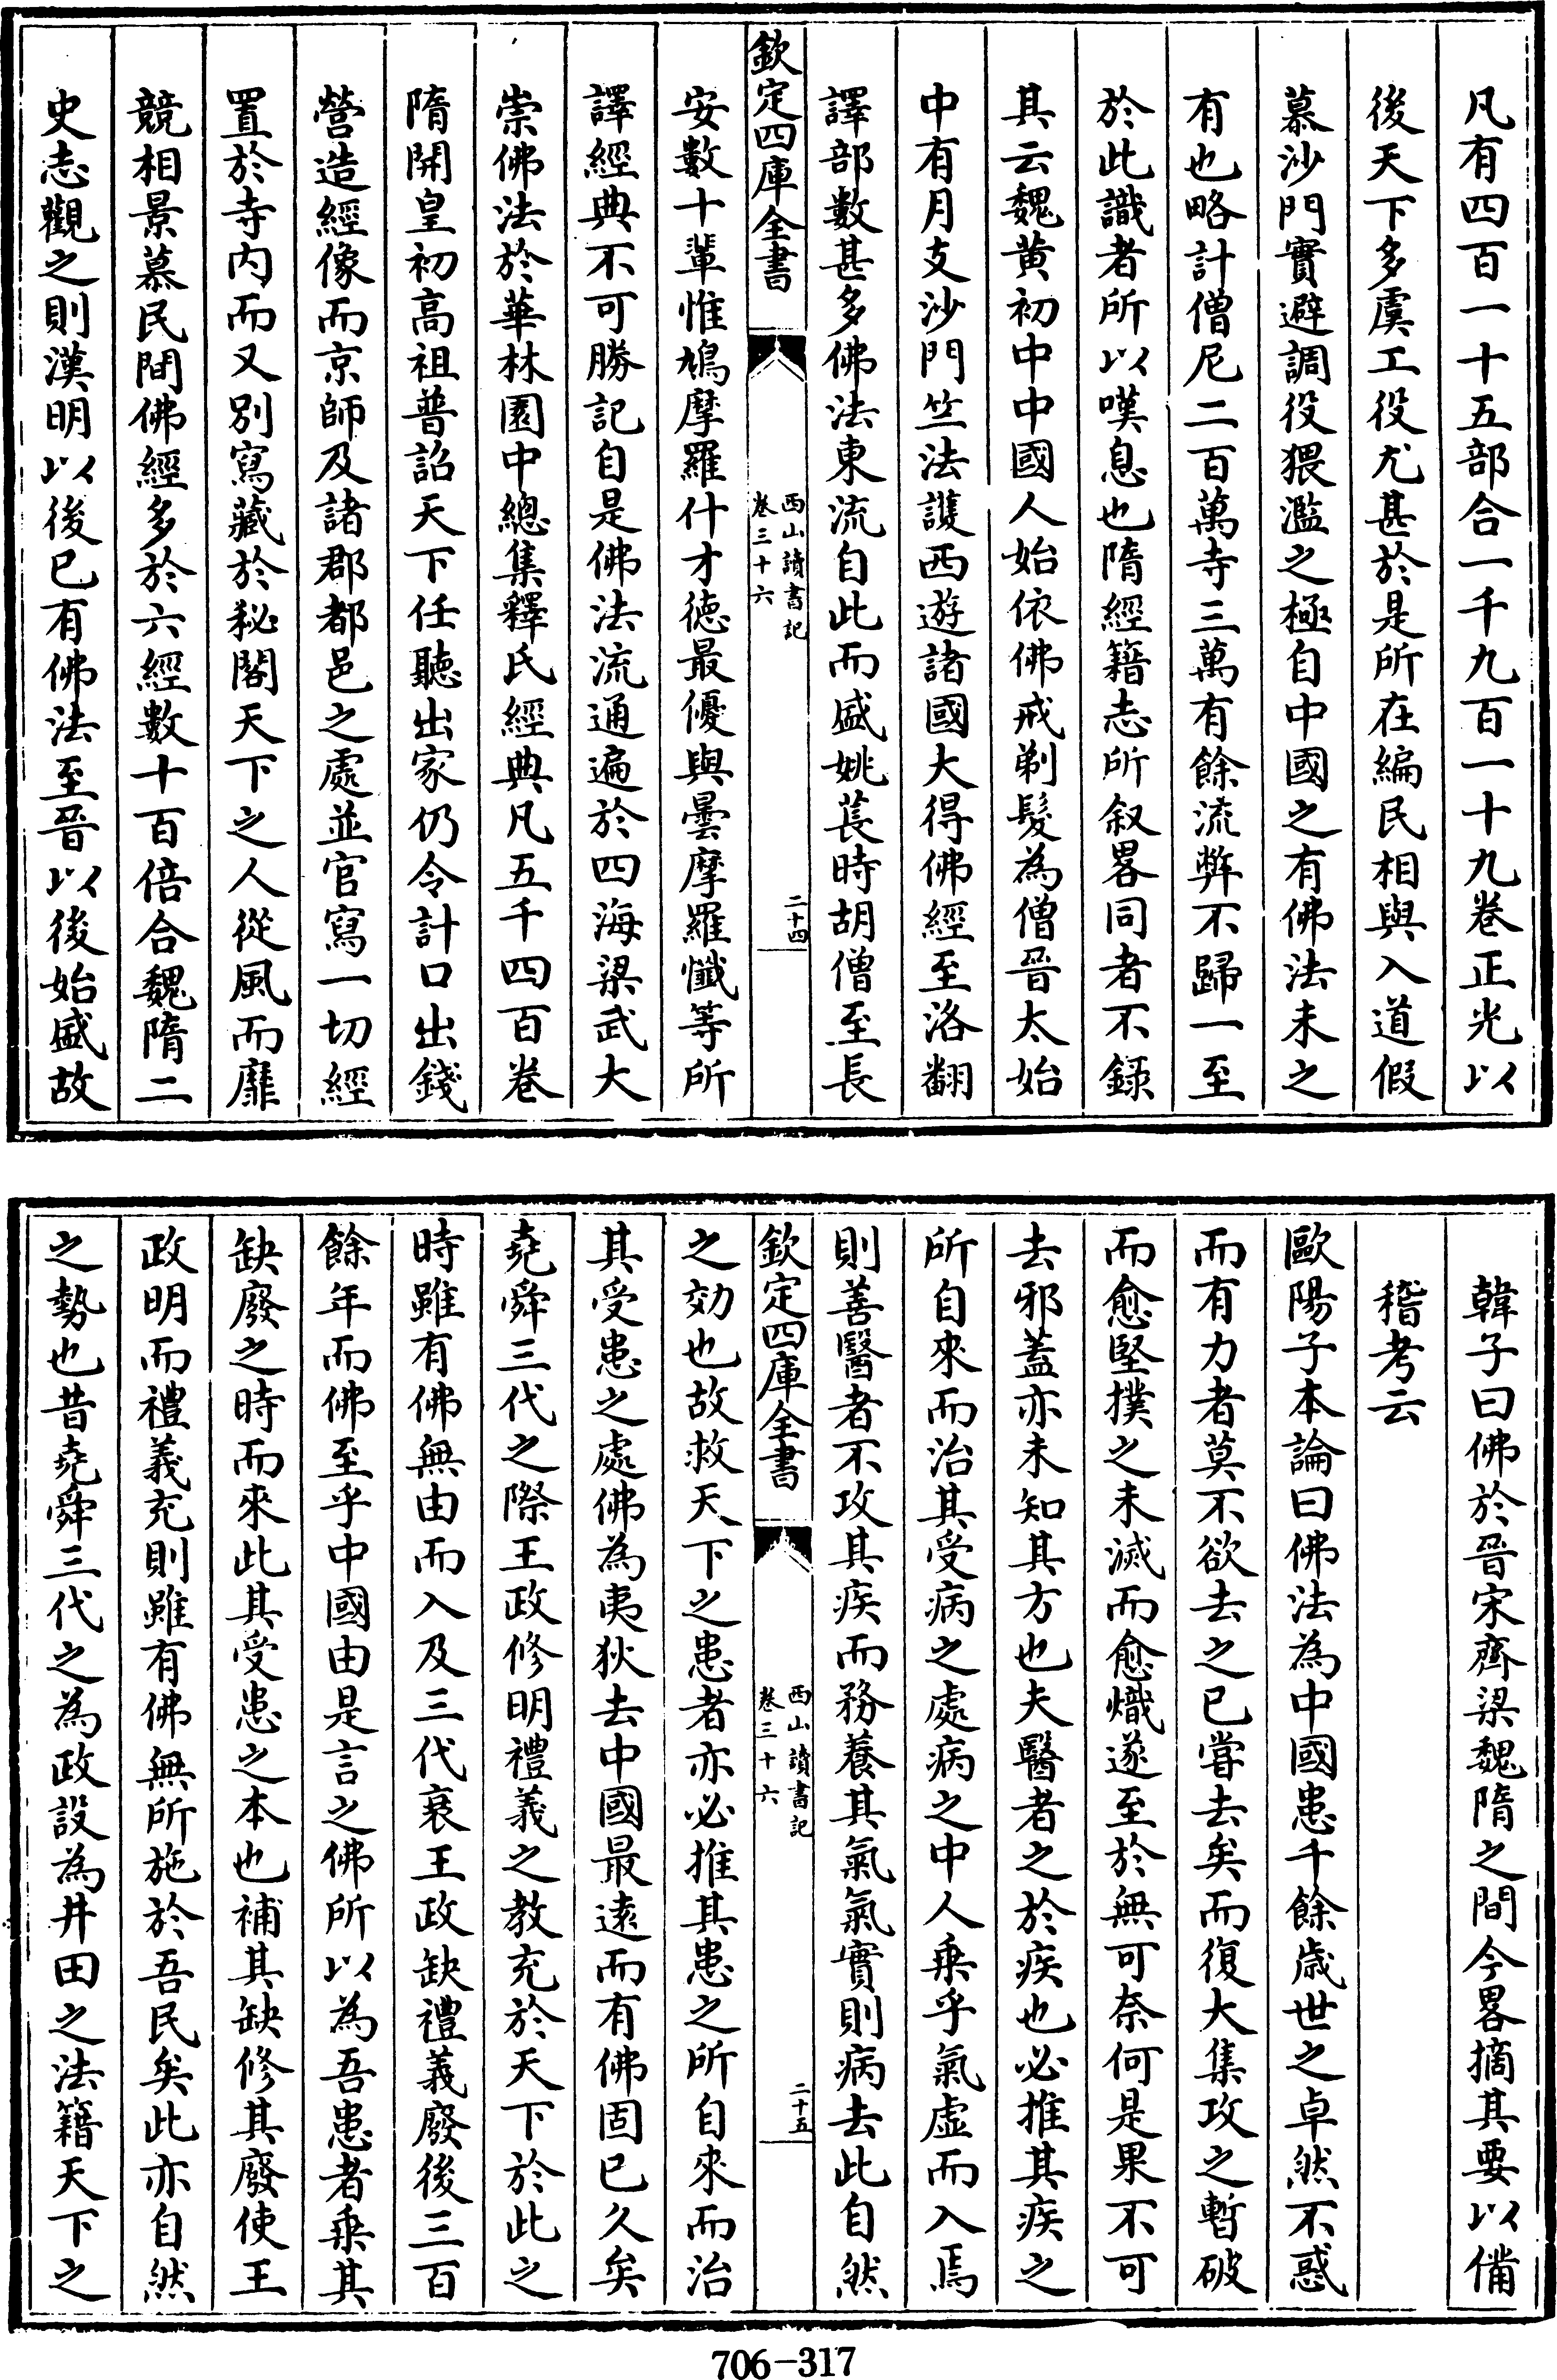 凡有四百一十五部合一千九百一十九卷正光以
後天下多虞工役尤甚於是所在編民相與入道假
慕沙門實避調役猥濫之極自中國之有佛法未之
有也略計僧尼二百萬寺三萬有餘流弊不歸一至
於此識者所以嘆息也隋經籍志所叙畧同者不錄
其云魏黄初中中國人始依佛戒剃髮為僧晉太始
中有月支沙門竺法護西遊諸國大得佛經至洛翻
譯部數甚多佛法東流自此而盛姚萇時胡僧至長
欽定四庫全書
西山讀書記
卷三十六
二十四
安數十輩惟鳩摩羅什才德最優與曇摩羅懺等所
譯經典不可勝記自是佛法流通遍於四海梁武大
崇佛法於華林園中總集釋氏經典凡五千四百卷
隋開皇初高祖普詔天下任聽出家仍令計口出錢
營造經像而京師及諸郡都邑之處並官寫一切經
置於寺内而又别寫藏於秘閣天下之人從風而靡
競相景慕民間佛經多於六經數十百倍合魏隋二
史志觀之則漢明以後已有佛法至晉以後始盛故
韓子曰佛於晉宋齊梁魏隋之間今畧摘其要以備
稽考云
歐陽子本論曰佛法為中國患千餘歲世之卓然不惑
而有力者莫不欲去之已嘗去矣而復大集攻之暫破
而愈堅撲之未滅而愈熾遂至於無可奈何是果不可
去邪蓋亦未知其方也夫醫者之於疾也必推其疾之
所自來而治其受病之處病之中人乘乎氣虛而入焉
則善醫者不攻其疾而務養其氣氣實則病去此自然
欽定四庫全書
西山讀書記
卷三十六
二十五
之効也故救天下之患者亦必推其患之所自來而治
其受患之處佛為夷狄去中國最遠而有佛固已久矣
堯舜三代之際王政修明禮義之教充於天下於此之
時雖有佛無由而入及三代衰王政缺禮義廢後三百
餘年而佛至乎中國由是言之佛所以為吾患者乘其
缺廢之時而來此其受患之本也補其缺修其廢使王
政明而禮義充則雖有佛無所施於吾民矣此亦自然
之勢也昔堯舜三代之為政設為井田之法籍天下之
706-317